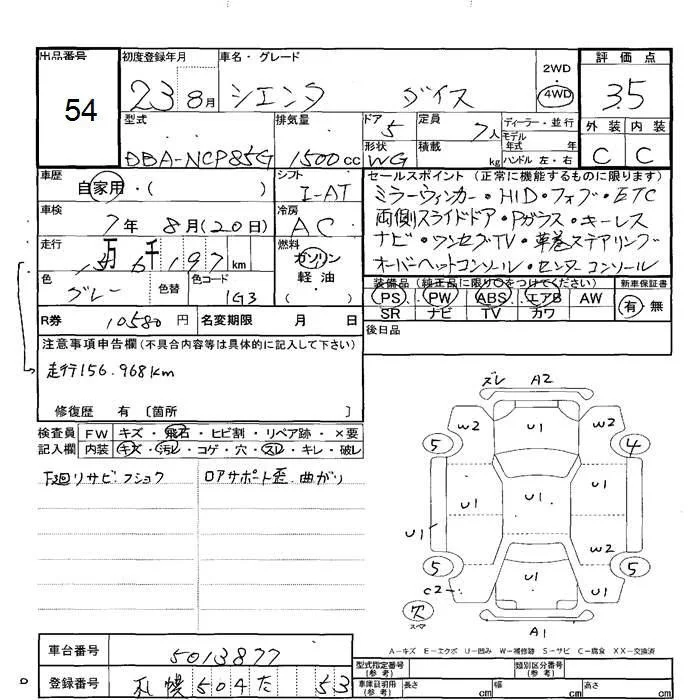 出品番号 初度登録年月 車名・グレード 2WD 4WD 評価点
54 23 8月 シエンタ ダイス 3.5
型式 排気量 ドア 5 定員 7人 ディーラー・並行 外装 内装
DBA-NCP85G 1500cc 形状 WG 積載 kg モデル年式 年 ハンドル 左・右 C C
車歴 自家用・( ) シフト I-AT セールスポイント (正常に機能するものに限ります)
車検 7年 8月(20日) 冷房 AC
ミラーウィンカー・HID・フォグ・ETC
両側スライドドア・Pガラス・キーレス
ナビ・ワンセグTV・革巻ステアリング
オーバーヘッドコンソール・センターコンソール
走行 万 千 156197km 燃料 ガソリン 軽・油 ( )
色 グレー 色替 色コード 1G3
装備品 (純正品に限り○をつけてください) 新車保証書
PS PW ABS エアB AW 有・無
SR ナビ TV カワ
R券 10580円 名変期限 月 日 後日品
注意事項申告欄 (不具合内容等は具体的に記入して下さい)
走行156.968km
修復歴 有 〔箇所 〕
検査員 FW キズ・飛石・ヒビ割・リペア跡・×要
記入欄 内装 キズ・汚レ・コゲ・穴・スレ・キレ・破レ
下廻リサビ フショク ロアサポート歪・曲がり
ズレ A2
W2 U1 W2
5 4
U1 U1 U1
U1 W2
5 5
C2 U1 U1
欠
スペア
A1
A-キズ E-エクボ U-凹み W-補修跡 S-サビ C-腐食 XX-交換済
車台番号 5013877
登録番号 札幌 504 た 53
型式指定番号 (参考) 類別区分番号 (参考)
車庫証明用 (参考) 長さ cm 幅 cm 高さ cm